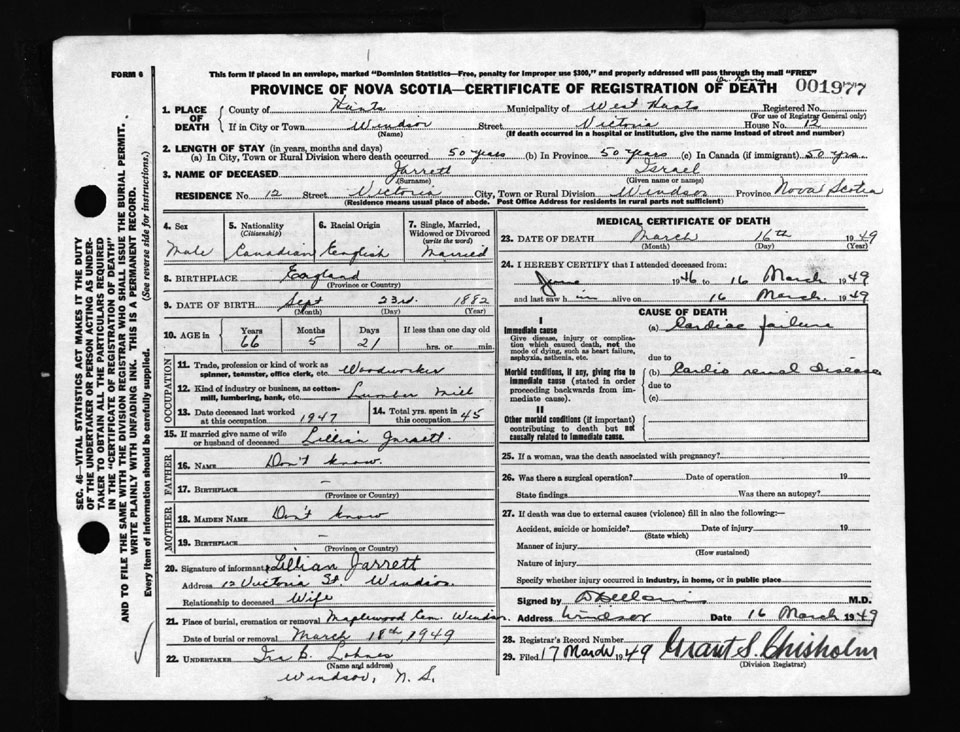 FORM 6
This form if placed in an envelope, marked "Dominion Statistics—Free, penalty for improper use $300," and properly addressed will pass through the mail "FREE"
PROVINCE OF NOVA SCOTIA—CERTIFICATE OF REGISTRATION OF DEATH 001977
1. PLACE OF DEATH
County of Hants Municipality of West Hants Registered No.
(For use of Registrar General only)
If in City or Town Windsor Street Victoria House No. 12
(Name) (If death occurred in a hospital or institution, give the name instead of street and number)
2. LENGTH OF STAY (in years, months and days)
(a) In City, Town or Rural Division where death occurred 50 years (b) In Province 50 years (c) In Canada (if immigrant) 50 yrs.
3. NAME OF DECEASED Jarrett Israel
(Surname) (Given name or names)
RESIDENCE No. 12 Street Victoria City, Town or Rural Division Windsor Province Nova Scotia
(Residence means usual place of abode. Post Office Address for residents in rural parts not sufficient)
4. Sex Male
5. Nationality (Citizenship) Canadian
6. Racial Origin English
7. Single, Married, Widowed or Divorced (write the word) Married
8. BIRTHPLACE England
(Province or Country)
9. DATE OF BIRTH Sept 23rd. 1882
(Month) (Day) (Year)
10. AGE in Years 66 Months 5 Days 21 If less than one day old hrs. or min.
OCCUPATION
11. Trade, profession or kind of work as spinner, teamster, office clerk, etc. Woodworker
12. Kind of industry or business, as cotton-mill, lumbering, bank, etc. Lumber Mill
13. Date deceased last worked at this occupation 1947
14. Total yrs. spent in this occupation 45
15. If married give name of wife or husband of deceased Lillian Jarrett.
FATHER
16. NAME Don't know.
17. BIRTHPLACE –
(Province or Country)
MOTHER
18. MAIDEN NAME Don't know
19. BIRTHPLACE –
(Province or Country)
20. Signature of informant Lillian Jarrett
Address 12 Victoria St. Windsor.
Relationship to deceased Wife
21. Place of burial, cremation or removal Maplewood Cem. Windsor
Date of burial or removal March 18th, 1949
22. UNDERTAKER Ira B. Lohnes
(Name and address)
Windsor, N. S.
MEDICAL CERTIFICATE OF DEATH
23. DATE OF DEATH March 16th 1949
(Month) (Day) (Year)
24. I HEREBY CERTIFY that I attended deceased from:
June 1946 to 16 March 1949
and last saw him alive on 16 March. 1949
CAUSE OF DEATH
I
Immediate cause
Give disease, injury or complication which caused death, not the mode of dying, such as heart failure, asphyxia, asthenia, etc.
(a) Cardiac failure
due to
Morbid conditions, if any, giving rise to immediate cause (stated in order proceeding backwards from immediate cause).
(b) Cardio renal disease
due to
(c)
II
Other morbid conditions (if important) contributing to death but not causally related to immediate cause.
25. If a woman, was the death associated with pregnancy?
26. Was there a surgical operation? Date of operation 19
State findings Was there an autopsy?
27. If death was due to external causes (violence) fill in also the following:—
Accident, suicide or homicide? Date of injury 19
(State which)
Manner of injury
(How sustained)
Nature of injury
Specify whether injury occurred in industry, in home, or in public place
Signed by M.D.
Address Windsor Date 16 March 1949
28. Registrar's Record Number
29. Filed 17 March 1949 Grant S. Chisholm
(Division Registrar)
SEC. 46—VITAL STATISTICS ACT MAKES IT THE DUTY
OF THE UNDERTAKER OR PERSON ACTING AS UNDER-
TAKER TO OBTAIN ALL THE PARTICULARS REQUIRED
IN THE "CERTIFICATE OF REGISTRATION OF DEATH"
AND TO FILE THE SAME WITH THE DIVISION REGISTRAR WHO SHALL ISSUE THE BURIAL PERMIT.
WRITE PLAINLY WITH UNFADING INK. THIS IS A PERMANENT RECORD.
Every item of information should be carefully supplied. (See reverse side for instructions.)